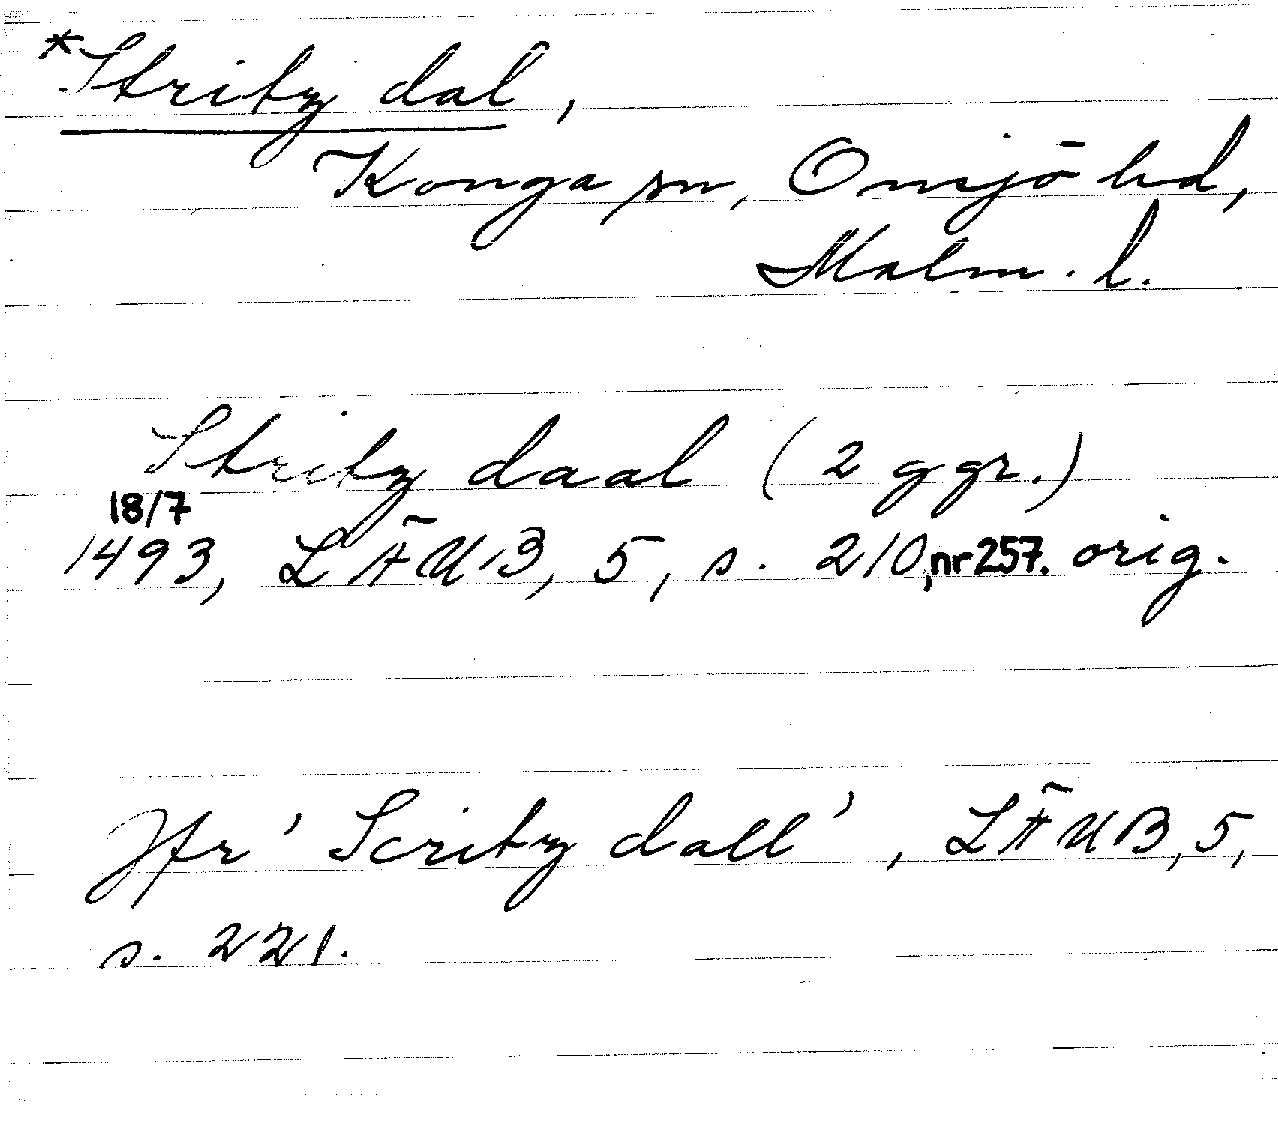 *Stritz dal,
Konga sn, Onsjö hd,
Malm. l.
Stritz daal (2 ggr.)
18/7
1493, LÄUB, 5, s. 210, nr 257. orig.
Jfr 'Scritz dall', LÄUB, 5,
s. 221.